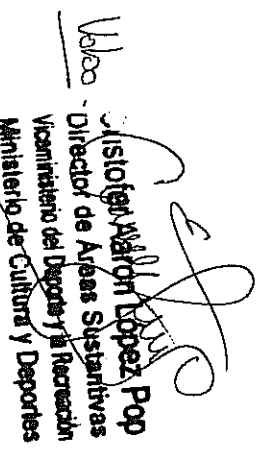 Vo.Bo.
Cristofer Aarón López Pop
Director de Áreas Sustantivas
Viceministerio del Deporte y la Recreación
Ministerio de Cultura y Deportes